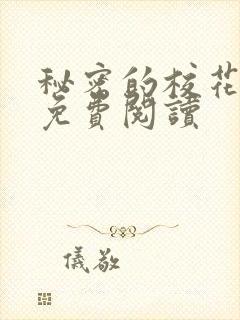 秘密的校花
免費閱讀
儀敬